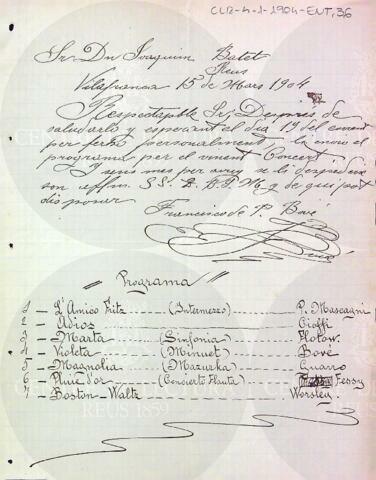 CLR-4-1-1904-ENT, 36
Sr. Dn Joaquim Batet
Reus
Vilafranca 15 de Mars 1904
Respectable Sr, Despres de
saludarlo y esperant el dia 19 del corrent
per ferho personalment, li envio el
programa per el vinent Concert.
Y sens mes per avuy se li despedeix
son affm. SS. Q. B. S. M. y de qui pot
disponer
Francisco de P. Bové
Programa
1 — L'Amico Fritz (Intermezzo) P. Mascagni
2 — Adios Cioffi
3 — Marta (Sinfonia) Flotow.
4 — Violeta (Minuet) Bové
5 — Magnolia (Mazurka) Guarro
6 — Pluie d'or (Concierto Flauta) Fessy
7 — Boston-Waltz Worsley.
CENTRE DE LECTURA
REUS 1859